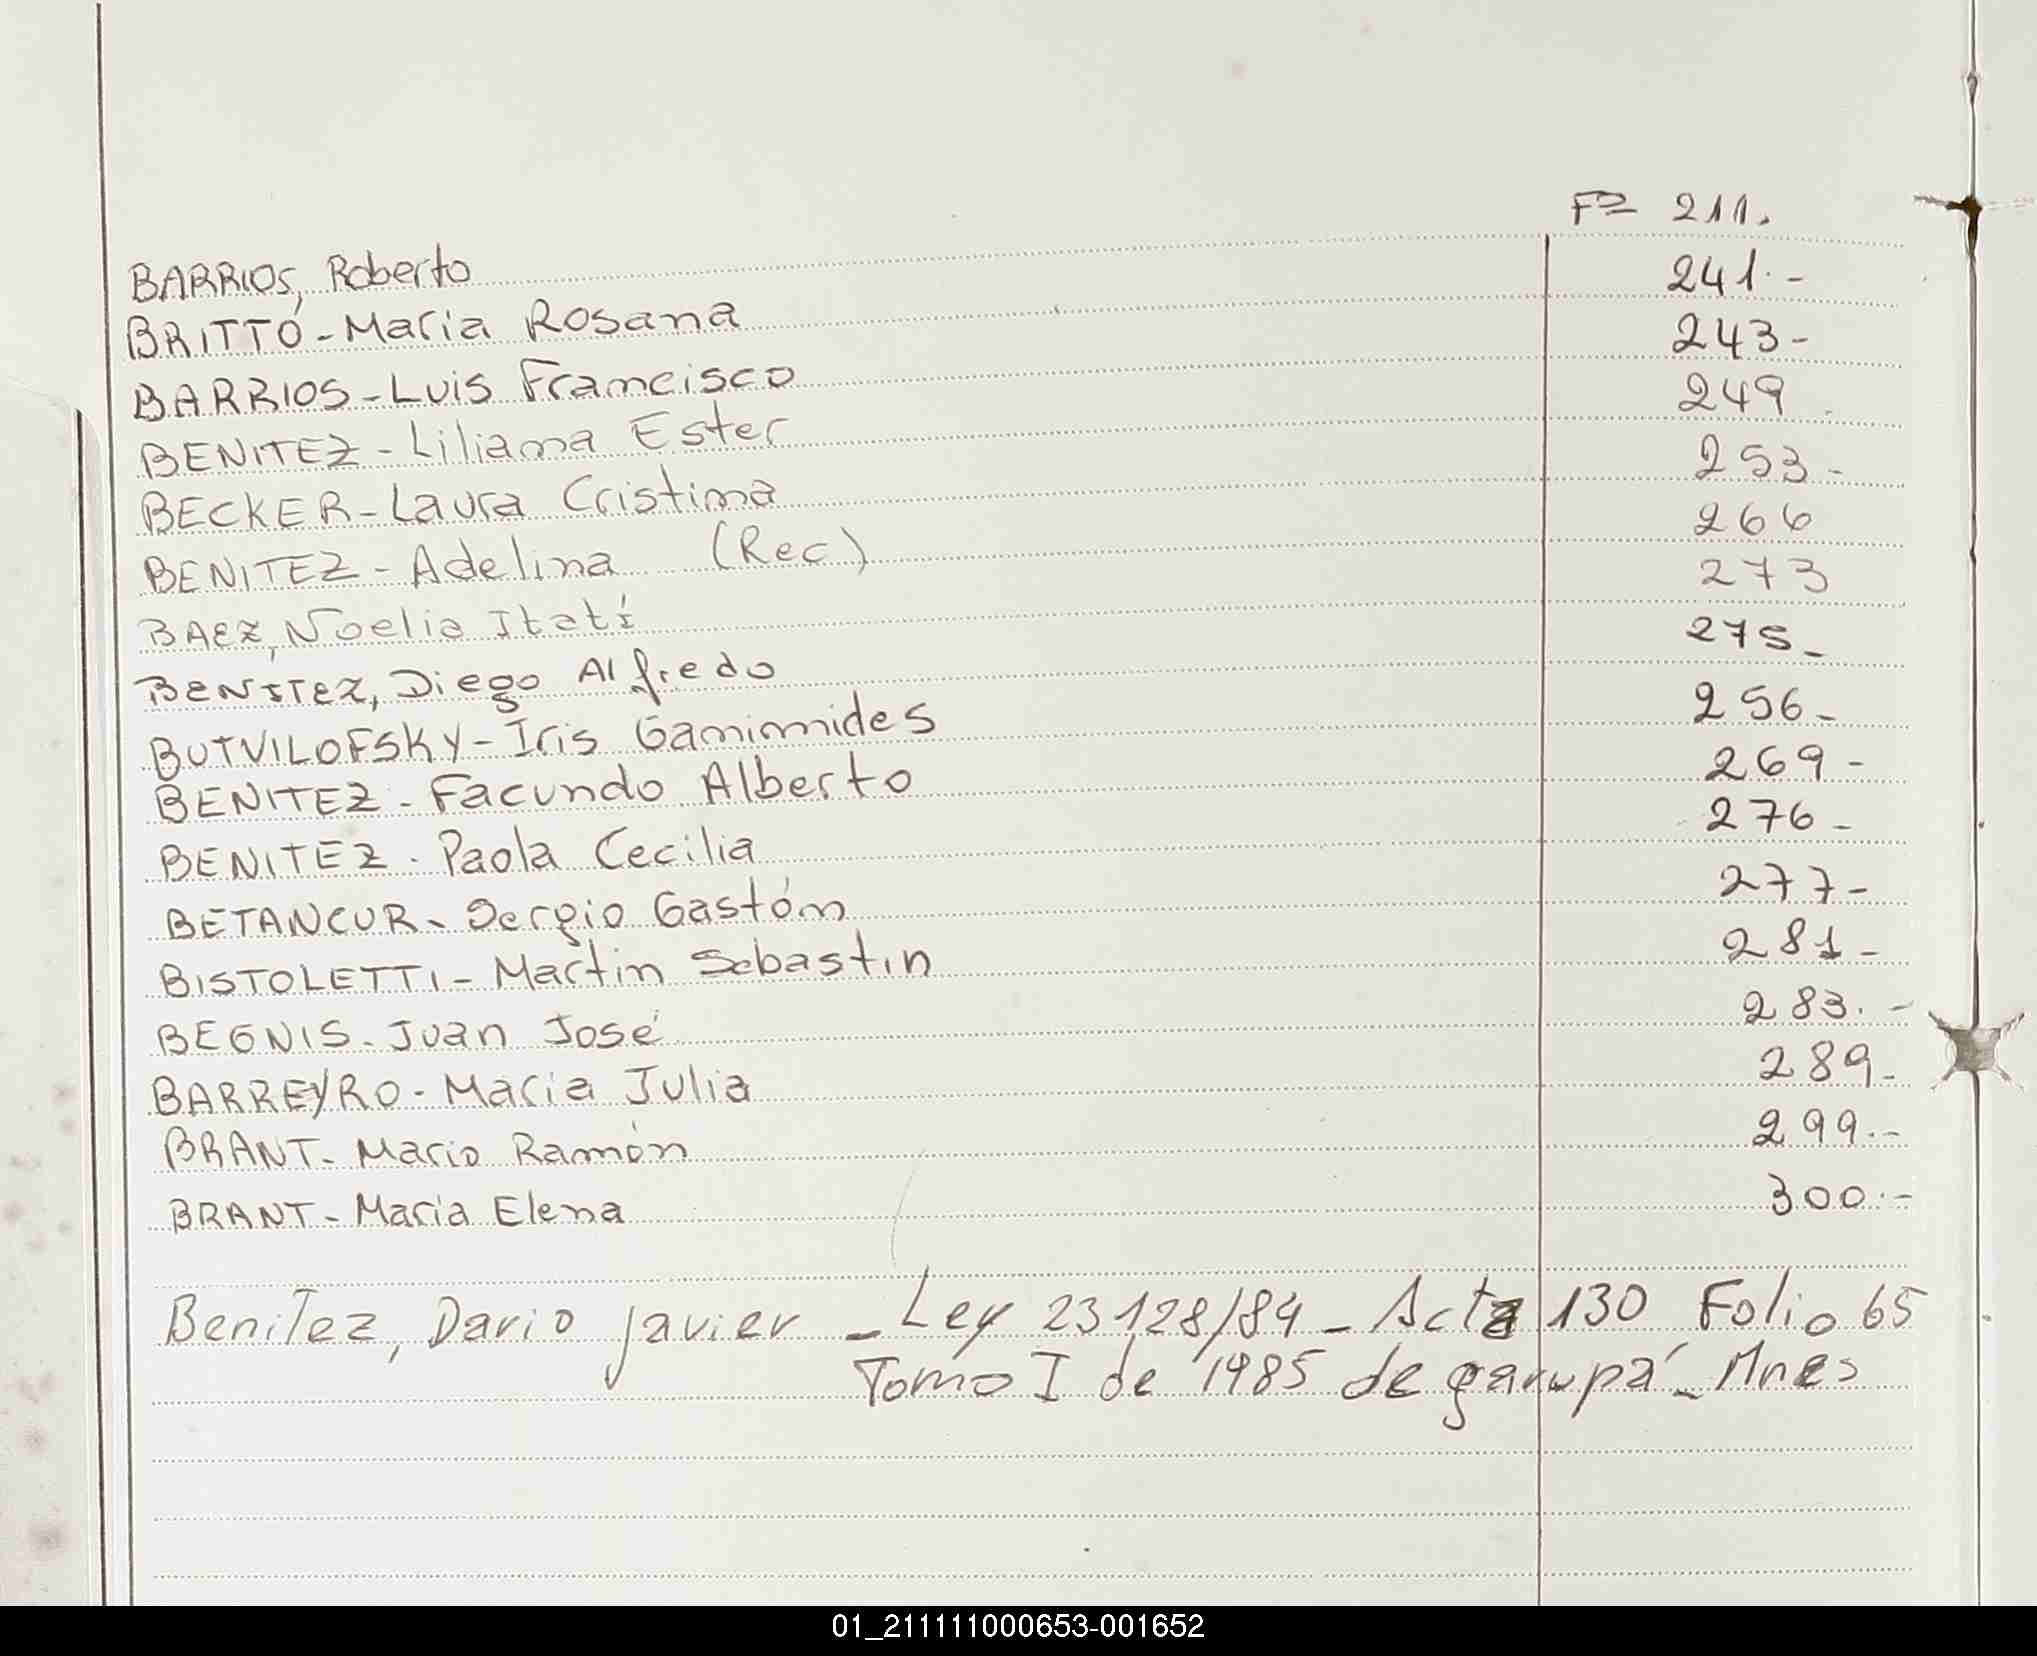 BARRIOS, Roberto Fº 211.
BRITTO - Maria Rosana 241.-
BARRIOS - Luis Francisco 243-
BENITEZ - Liliana Ester 249
BECKER - Laura Cristina 253-
BENITEZ - Adelina (Rec) 266
BAEZ, Noelia Itatí 273
BENITEZ, Diego Alfredo 275-
BUTVILOFSKY - Iris Ganimides 256-
BENITEZ - Facundo Alberto 269-
BENITEZ - Paola Cecilia 276-
BETANCUR - Sergio Gastón 277-
BISTOLETTI - Martin Sebastin 281-
BEGNIS - Juan José 283.-
BARREYRO - Maria Julia 289-
BRANT - Mario Ramón 299.-
BRANT - Maria Elena 300.-
Benitez, Dario Javier - Ley 23128/84 - Acta 130 Folio 65
Tomo I de 1985 de garupá - Mnes
01_211111000653-001652